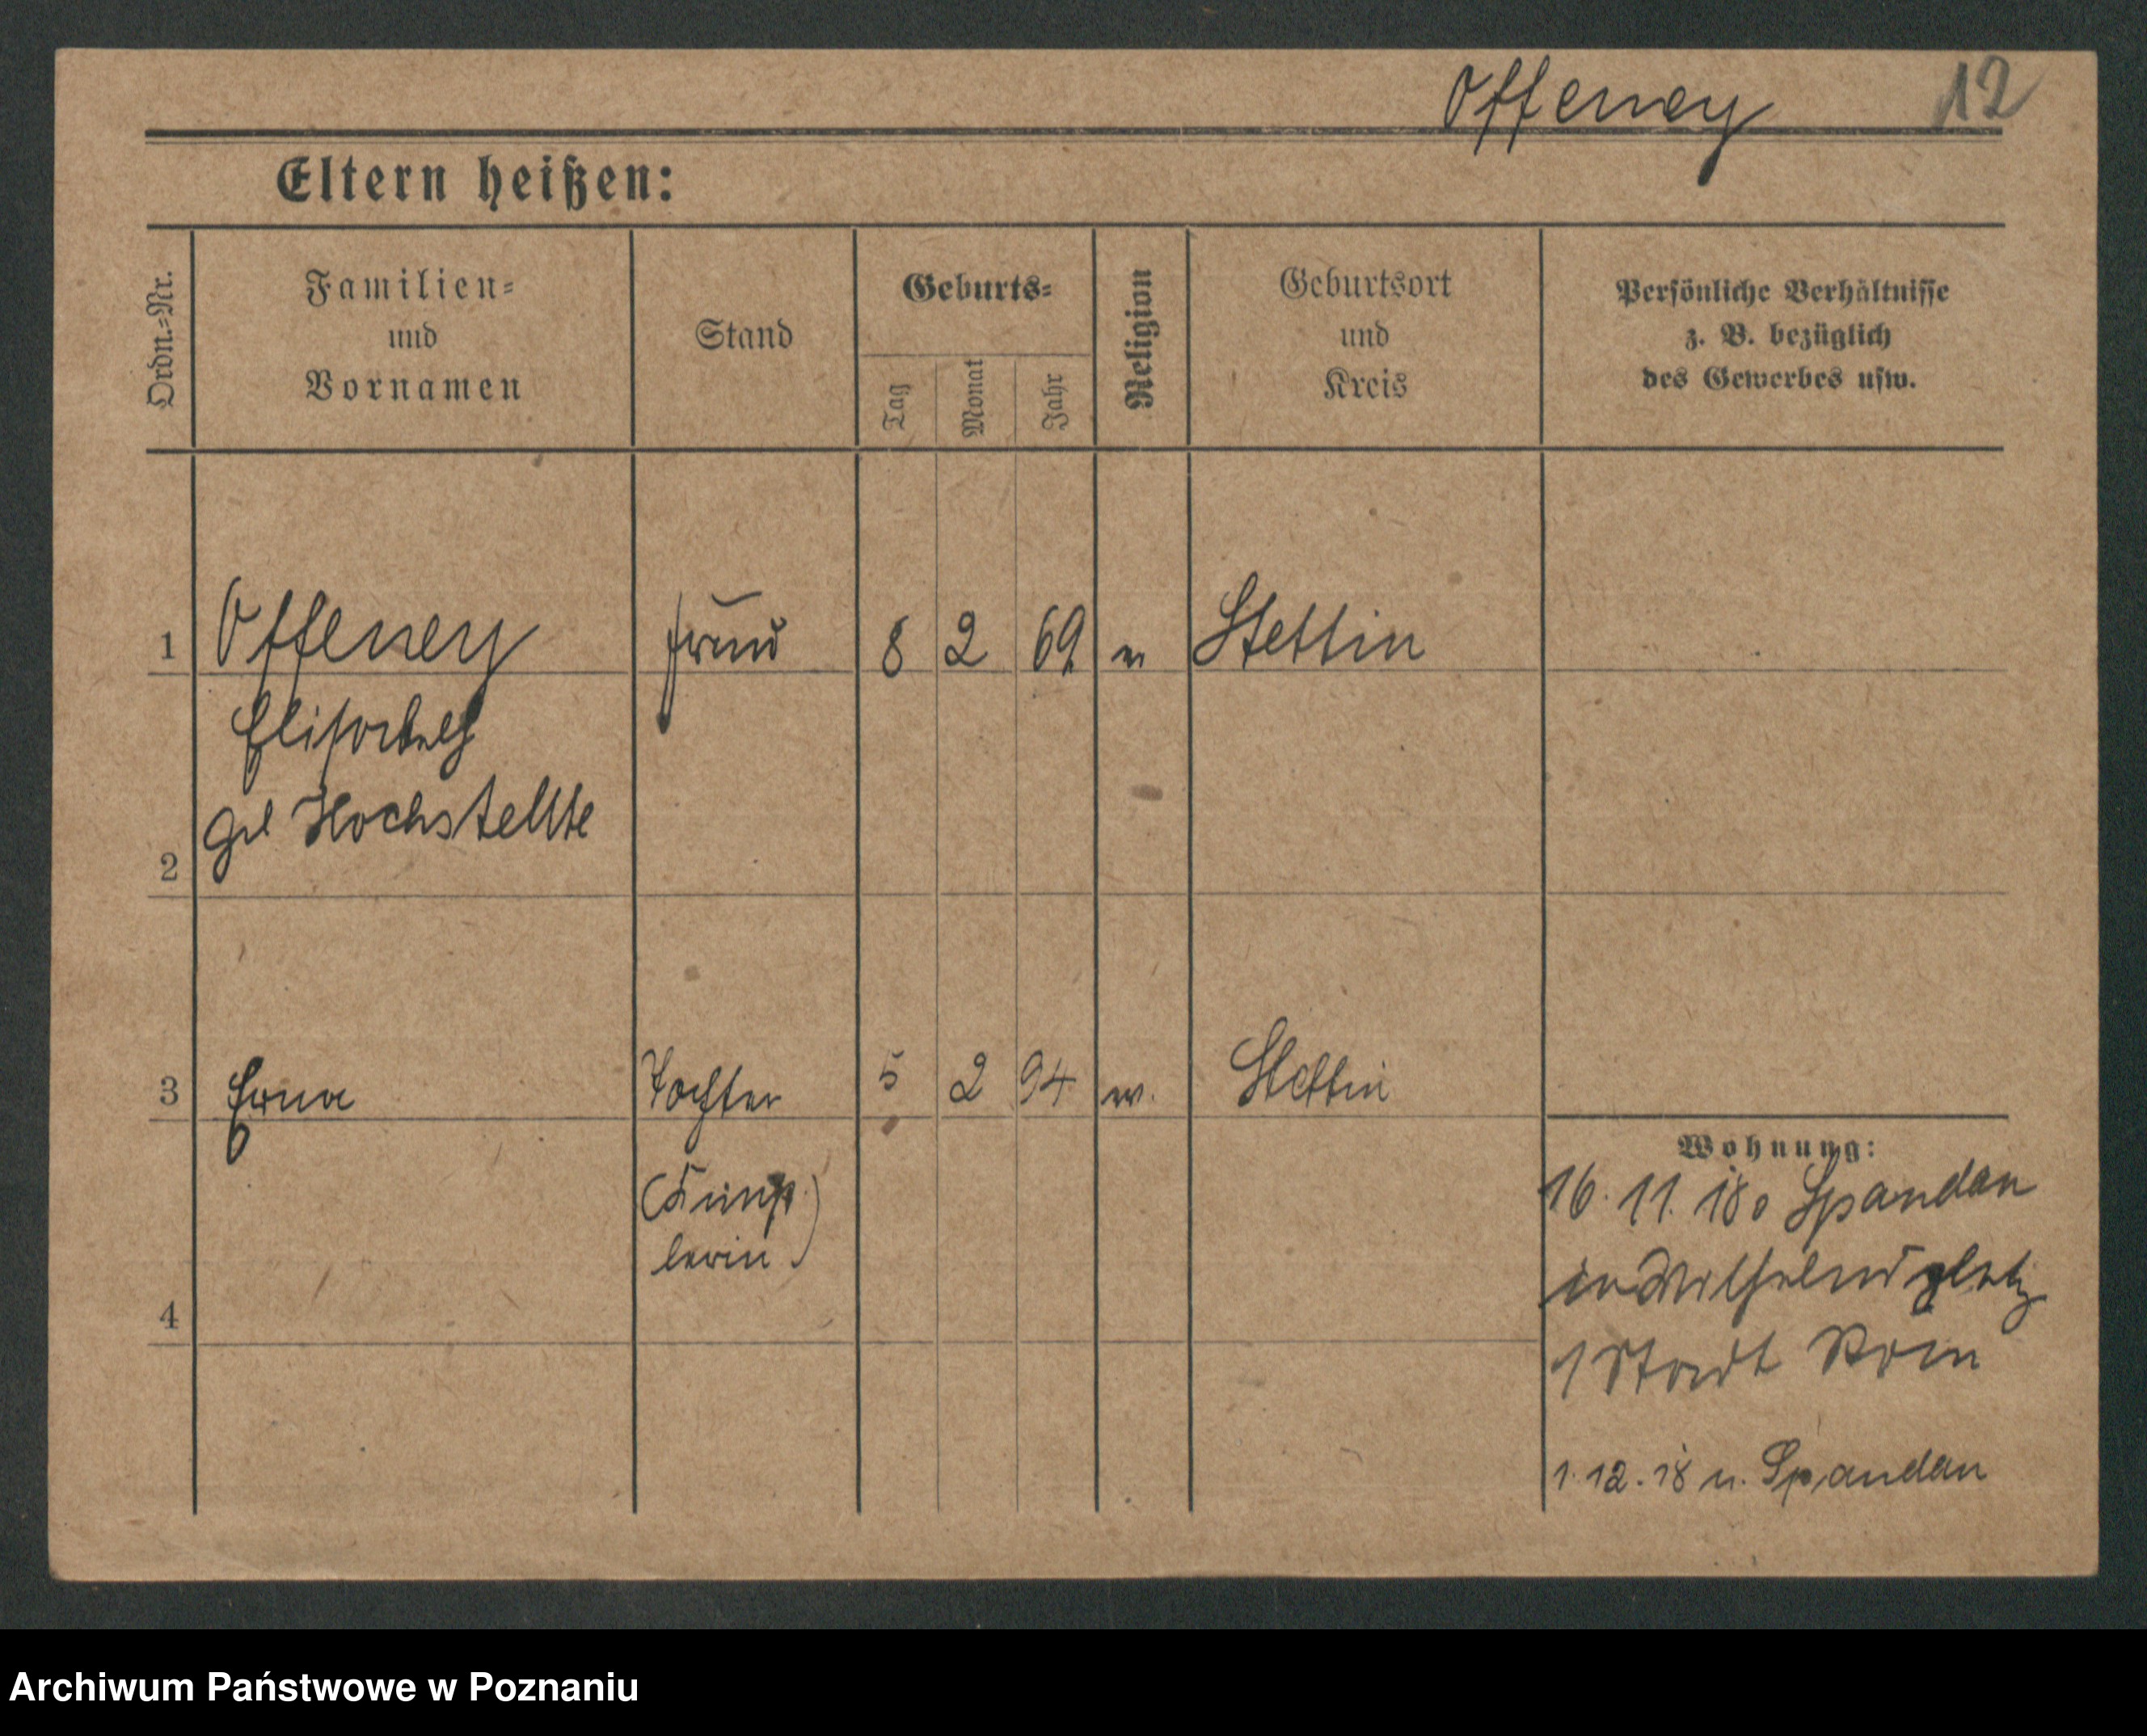 Offeney 12
Eltern heißen:
Ordn.-Nr.
Familien-
und
Vornamen
Stand
Geburts-
Tag
Monat
Jahr
Religion
Geburtsort
und
Kreis
Persönliche Verhältnisse
z. B. bezüglich
des Gewerbes usw.
1 Offeney Frau 8 2 69 Stettin
Elisabeth
geb Hochstellte
2
3 Erna Tochter 5 2 94 Stettin
Wohnung:
16. 11. 18 Spandau
(Künst
lerin)
Wilhelmsplatz
4
1 Stadt Rom
1.12.18 n. Spandau
Archiwum Państwowe w Poznaniu